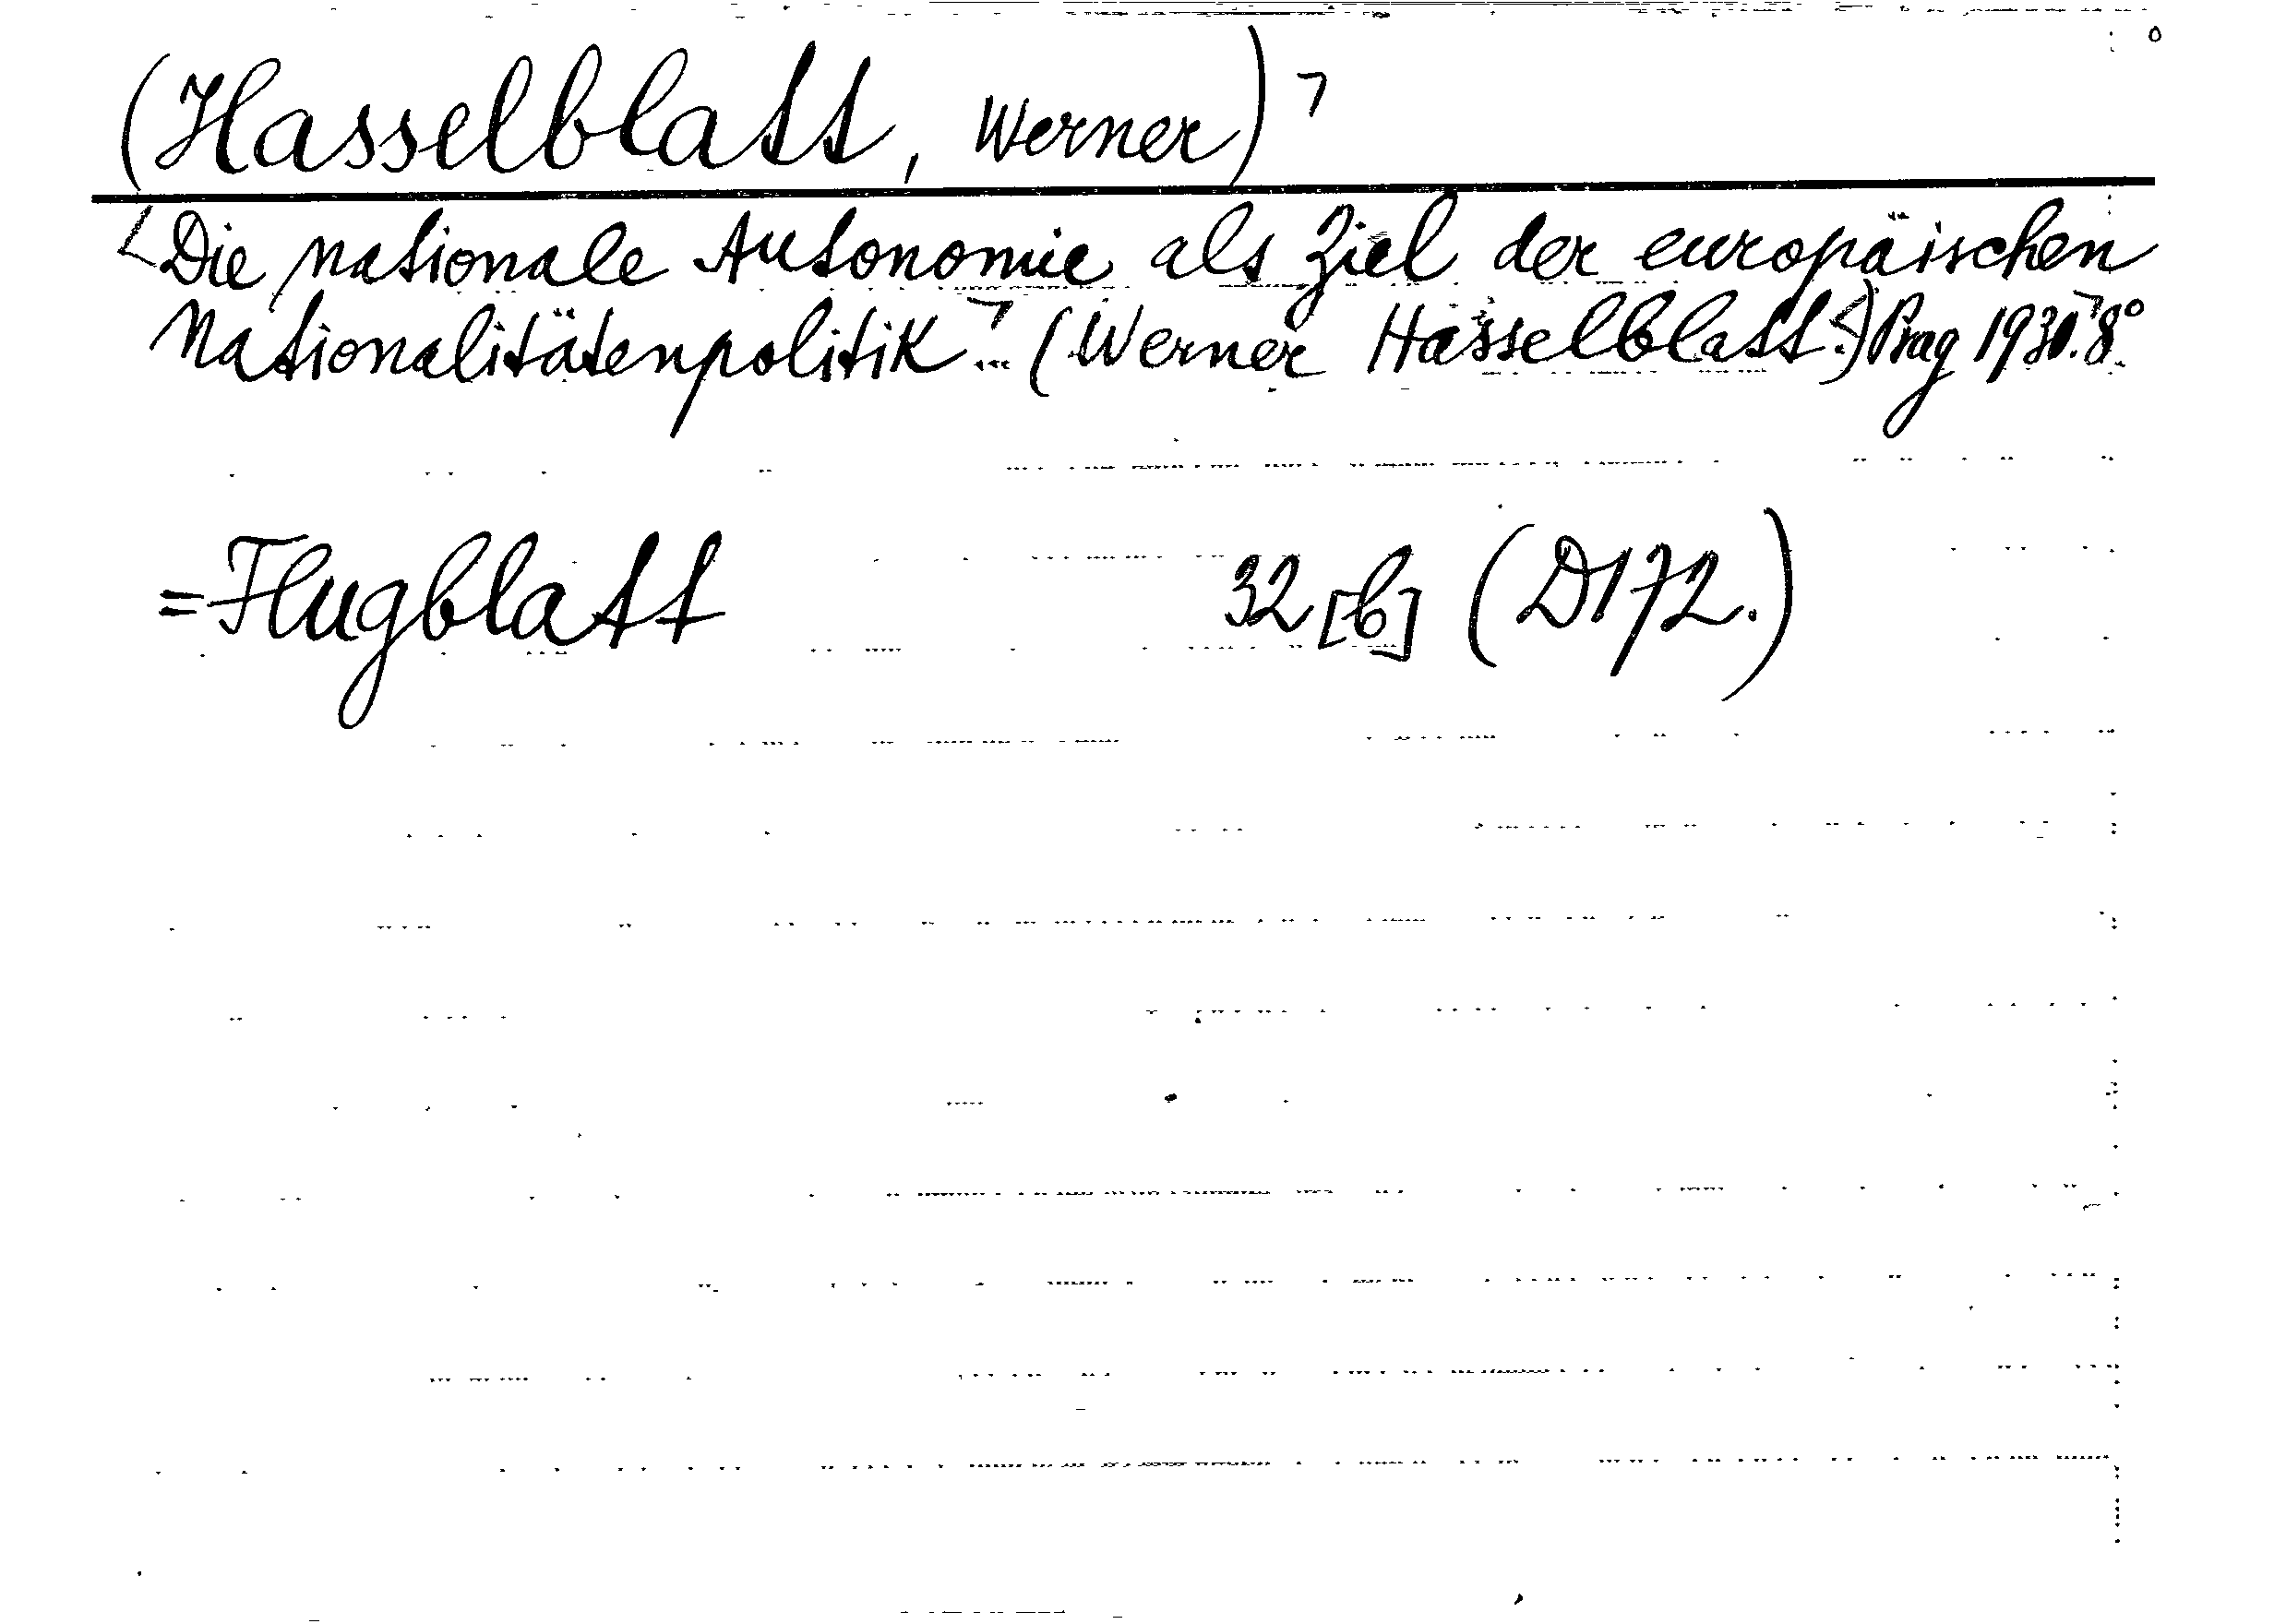 (Hasselblatt, Werner)⌝
<Die nationale Autonomie als Ziel der europäischen
Nationalitätenpolitik⌝... (Werner Hasselblatt.<) Prag 1930.⌝ 8°
=Flugblatt 32[b] (D172.)